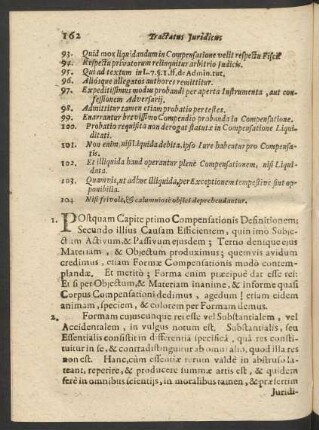 162 Tractatus Juridicus
93. Quid mox liquidandum in Compensatione velit respectu Fisci?
94. Respectu privatorum relinquitur arbitrio Judicis.
95. Qui ad textum in L. 7. §. 1. ff. de Admin. tut.
96. Aliosque allegatos authores remittitur.
97. Expeditissimus modus probandi per aperta Instrumenta, aut con-
fessionem Adversarij.
98. Admittitur tamen etiam probatio per testes.
99. Enarrantur brevissimo Compendio probanda in Compensatione.
100. Probatio requisita non derogat statutæ in Compensatione Liqui-
ditati.
101. Non enim, nisi Liquida debita, ipso Jure habentur pro Compensa-
tis.
102. Et illiquida haud operantur plenè Compensationem, nisi Liqui-
data.
103. Quamvis, ut adhuc illiquida, per Exceptionem tempestivè sint op-
ponibilia.
104. Nisi frivolè, & calumniosè objici deprehendantur.
1. POstquam Capite primo Compensationis Definitionem;
Secundo illius Causam Efficientem, quin imo Subje-
ctum Activum, & Passivum ejusdem; Terno denique ejus
Materiam, & Objectum produximus; quemvis avidum
credimus, etiam Formæ Compensationis modo contem-
plandæ. Et meritò; Forma enim præcipuè dat esse rei:
Et si per Objectum, & Materiam inanime, & informe quasi
Corpus Compensationis dedimus, agedum! etiam eidem
animam, speciem, & corporis Formam demus.
2. Formam cujuscunque rei esse vel Substantialem, vel
Accidentalem, in vulgus notum est. Substantialis, seu
Essentialis consistit in differentia specifica, quâ res consti-
tuitur in se, & contradistinguitur ab omni alio, quod illa res
non est. Hanc, cùm essentiæ rerum valdè in abstruso la-
teant, reperire, & producere summæ artis est, & quidem
ferè in omnibus scientijs, in moralibus tamen, & præsertim
Juridi-